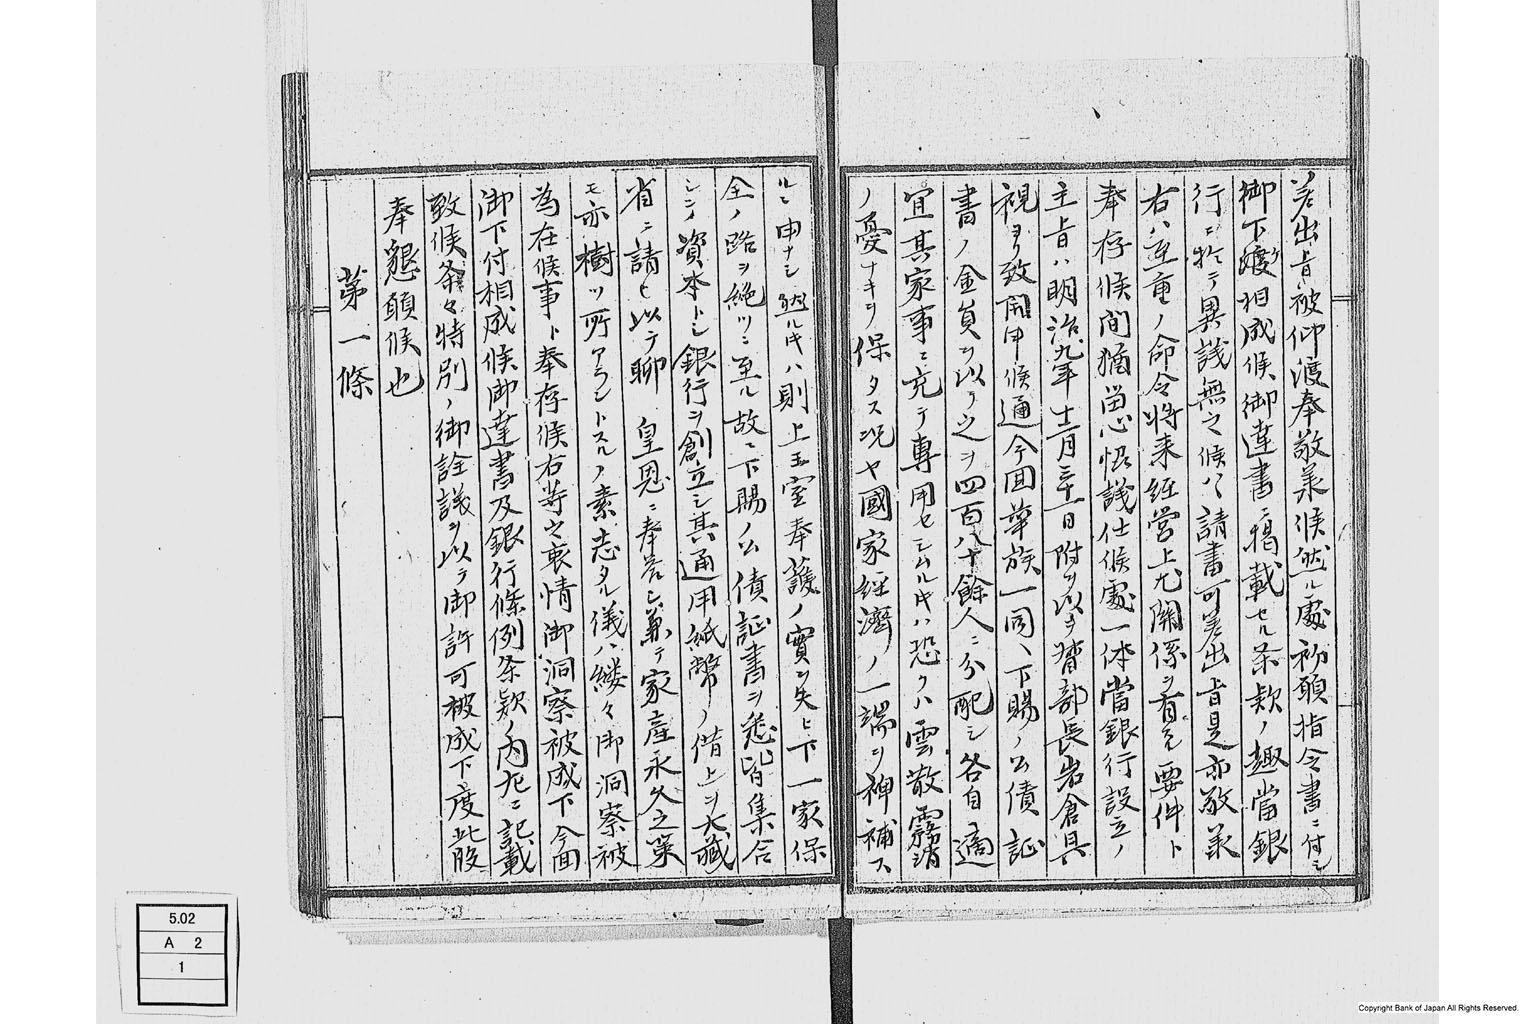 差出旨被仰渡奉敬承候然ル處初願指令書ニ付シ
御下渡相成候御達書ニ掲載セル条款ノ趣當銀
行ニ於テ異議無之候ハヽ請書可差出旨是亦敬承
右ハ至重ノ命令将来経営上尤関係ヲ有スル要件ト
奉存候間猶留心協議仕候處一体當銀行設立ノ
主旨ハ明治九年十二月三十一日附ヲ以テ督部長岩倉具
視ヨリ致開申候通今回華族一同ヘ下賜ノ公債証
書ノ金員ヲ以テ之ヲ四百八十餘人ニ分配シ各自適
宜其家事ニ充テ専用セシムルキハ恐クハ雲散霧消
ノ憂ナキヲ保タス况ヤ國家経濟ノ一端ヲ裨補ス
ルニ由ナシ然ルキハ則上王室奉護ノ實ヲ失ヒ下一家保
全ノ路ヲ絶ツニ至ル故ニ下賜ノ公債証書ヲ悉皆集合
シ之ノ資本トシ銀行ヲ創立シ其通用紙幣ノ借上ヲ大藏
省ニ請ヒ以テ聊 皇恩ニ奉答シ兼テ家産永久之策
モ亦樹ツ所アラントスルノ素志タル儀ハ縷々御洞察被
為在候事ト奉存候右等之衷情御洞察被成下今回
御下付相成候御達書及銀行條例条款ノ内左ニ記載
致候条々特別ノ御詮議ヲ以テ御許可被成下度此段
奉懇願候也
第一條
5.02
A 2
1
Copyright Bank of Japan All Rights Reserved.